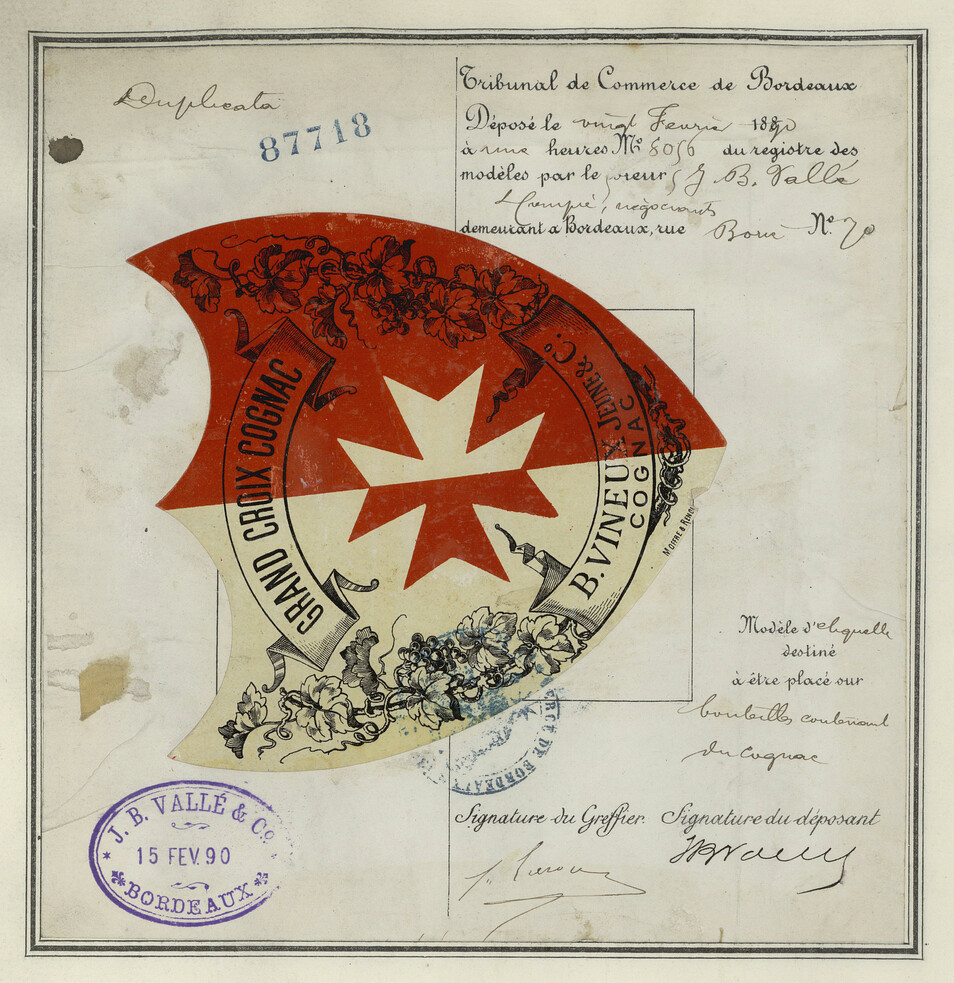 Duplicata
87718
Tribunal de Commerce de Bordeaux
Déposé le vingt Fevrier 1890
à une heures No 8056 du registre des
modèles par le sieur J. B. Vallé
négociants
demeurant à Bordeaux, rue Borie No. 70
GRAND CROIX COGNAC
B. VINEUX JEUNE & Co.
COGNAC
Modèle d'etiquette
destiné
à être placé sur
bouteilles contenant
du Cognac
RCE DE BORDEAUX
Signature du Greffier. Signature du déposant
J. B. VALLÉ & Co
15 FEV. 90
BORDEAUX